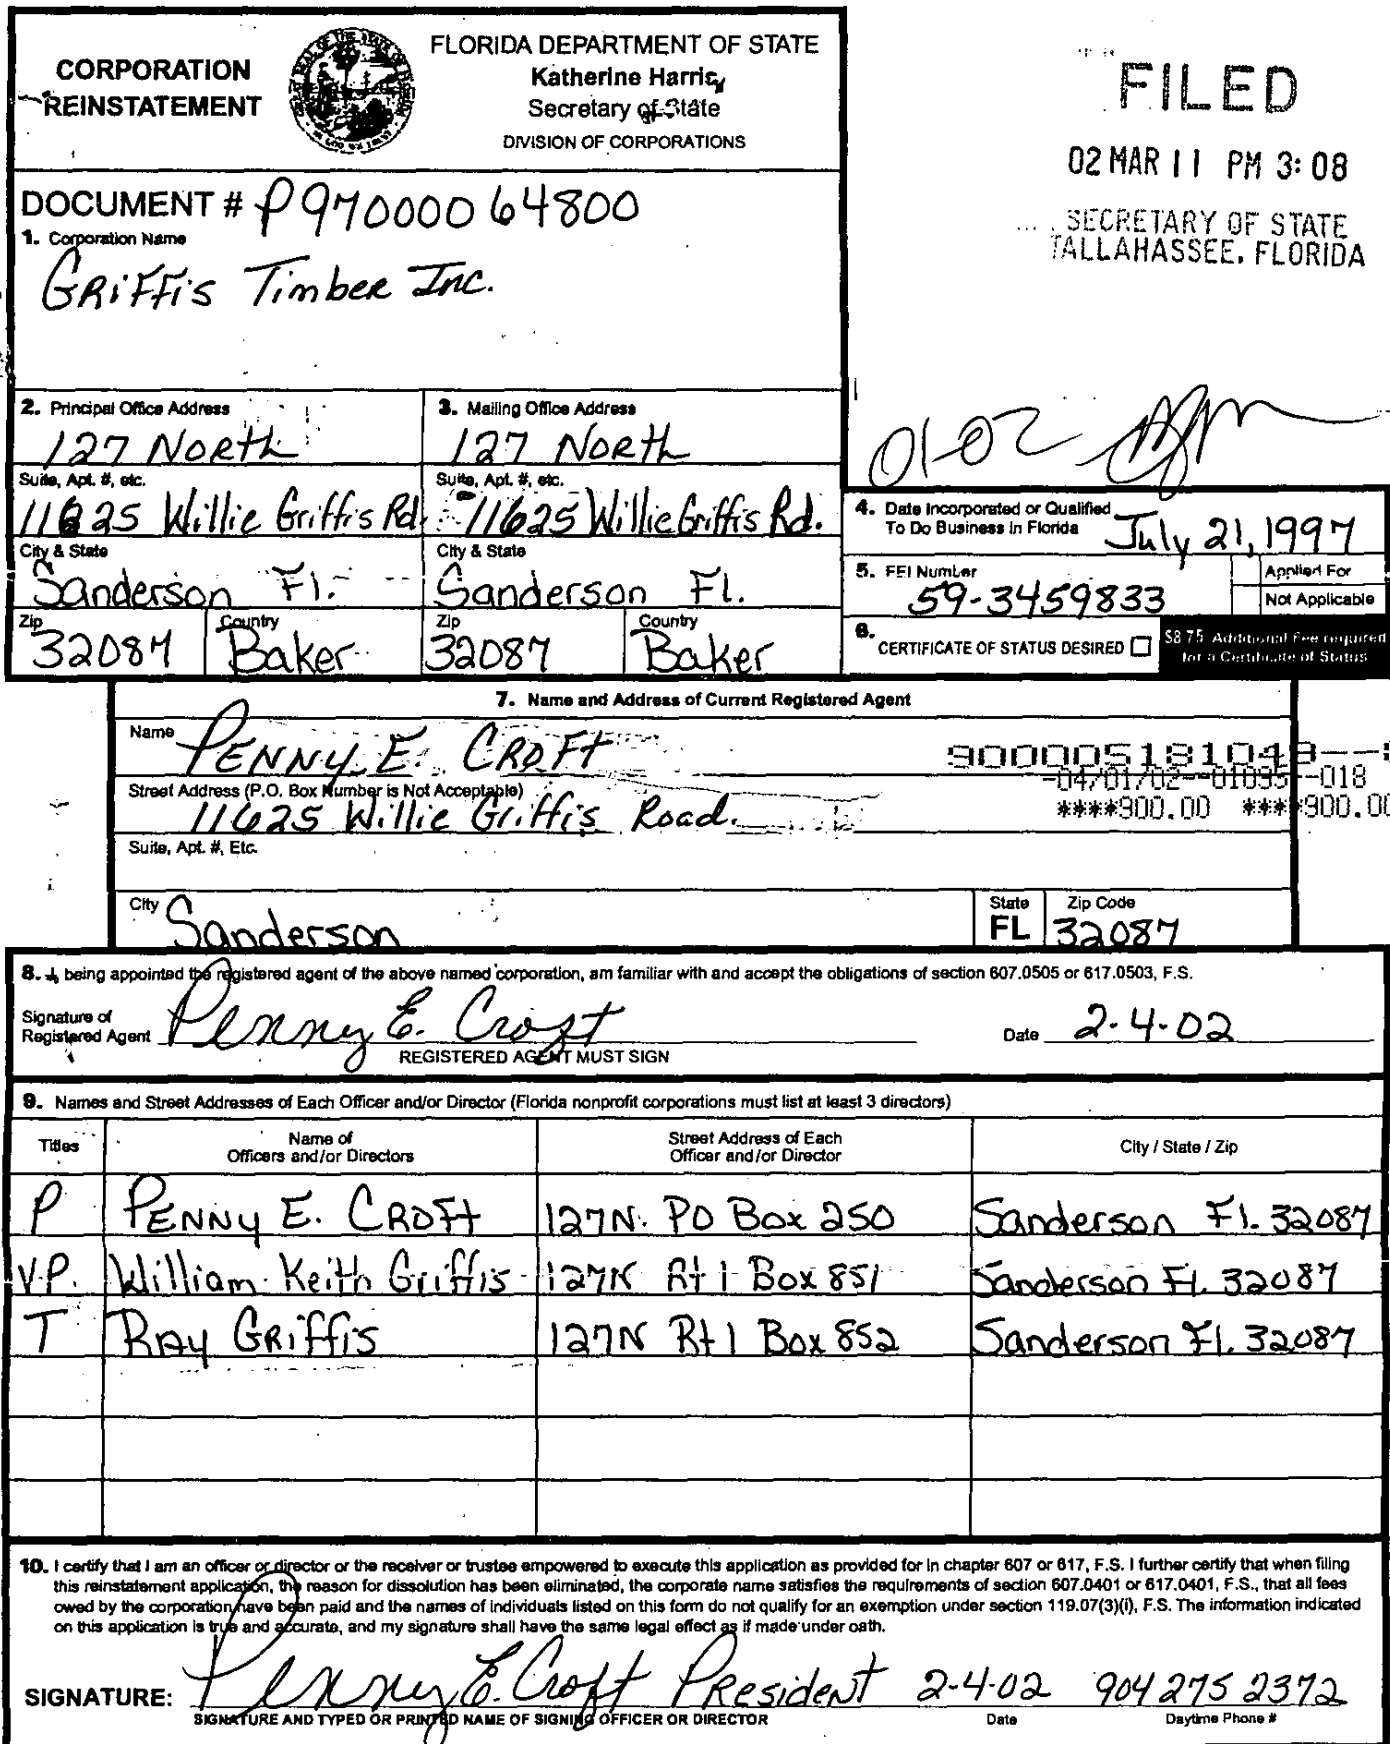 CORPORATION
REINSTATEMENT
FLORIDA DEPARTMENT OF STATE
Katherine Harris
Secretary of State
DIVISION OF CORPORATIONS
FILED
02 MAR 11 PM 3:08
SECRETARY OF STATE
TALLAHASSEE, FLORIDA
DOCUMENT # P97000064800
1. Corporation Name
GRiffis Timber Inc.
2. Principal Office Address
127 North
3. Mailing Office Address
127 North
01-02
Suite, Apt. #, etc.
11625 Willie Griffis Rd.
Suite, Apt. #, etc.
11625 Willie Griffis Rd.
4. Date Incorporated or Qualified
To Do Business in Florida
July 21, 1997
City & State
Sanderson Fl.
City & State
Sanderson Fl.
5. FEI Number
59-3459833
Applied For
Not Applicable
Zip
32087
Country
Baker
Zip
32087
Country
Baker
6.
CERTIFICATE OF STATUS DESIRED
$8.75 Additional Fee required
for a Certificate of Status
7. Name and Address of Current Registered Agent
Name
PENNY E. CROFT
900005181049--
-04/01/02--01095--018
****900.00 ****900.00
Street Address (P.O. Box Number is Not Acceptable)
11625 Willie Griffis Road.
Suite, Apt. #, Etc.
City
Sanderson
State
FL
Zip Code
32087
8. I, being appointed the registered agent of the above named corporation, am familiar with and accept the obligations of section 607.0505 or 617.0503, F.S.
Signature of
Registered Agent
Penny E. Croft
Date 2-4-02
REGISTERED AGENT MUST SIGN
9. Names and Street Addresses of Each Officer and/or Director (Florida nonprofit corporations must list at least 3 directors)
Titles
Name of
Officers and/or Directors
Street Address of Each
Officer and/or Director
City / State / Zip
P PENNY E. CROFT 127N. PO Box 250 Sanderson Fl. 32087
V.P. William Keith Griffis 127N Rt 1 Box 851 Sanderson Fl. 32087
T RAY GRiffis 127N Rt 1 Box 852 Sanderson Fl. 32087
10. I certify that I am an officer or director or the receiver or trustee empowered to execute this application as provided for in chapter 607 or 617, F.S. I further certify that when filing
this reinstatement application, the reason for dissolution has been eliminated, the corporate name satisfies the requirements of section 607.0401 or 617.0401, F.S., that all fees
owed by the corporation have been paid and the names of individuals listed on this form do not qualify for an exemption under section 119.07(3)(i), F.S. The information indicated
on this application is true and accurate, and my signature shall have the same legal effect as if made under oath.
SIGNATURE: Penny E. Croft President 2-4-02 904 275 2372
SIGNATURE AND TYPED OR PRINTED NAME OF SIGNING OFFICER OR DIRECTOR
Date
Daytime Phone #